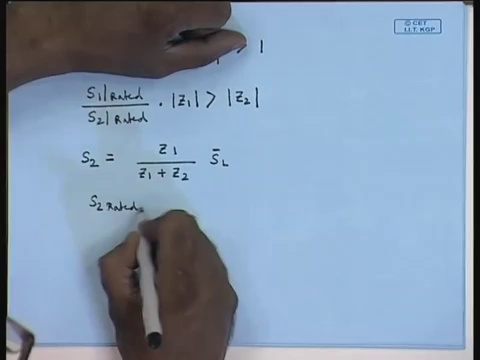 > 1
© CET
I.I.T. KGP
S1|Rated / S2|Rated · |Z1| > |Z2|
S2 = Z1 / Z1 + Z2 S̄L
S2 Rated